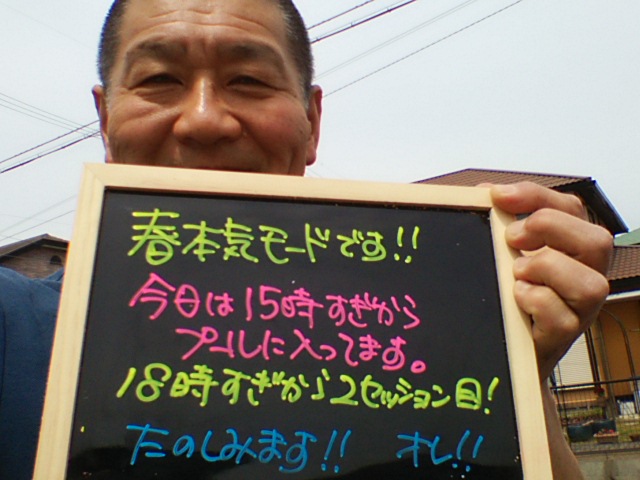 春本気モードです!!
今日は15時すぎから
プールに入ってます。
18時すぎから2セッション目!
たのしみます!! オレ!!